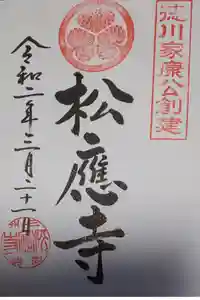 徳川家康公創建
松應寺
令和二年三月二十一日